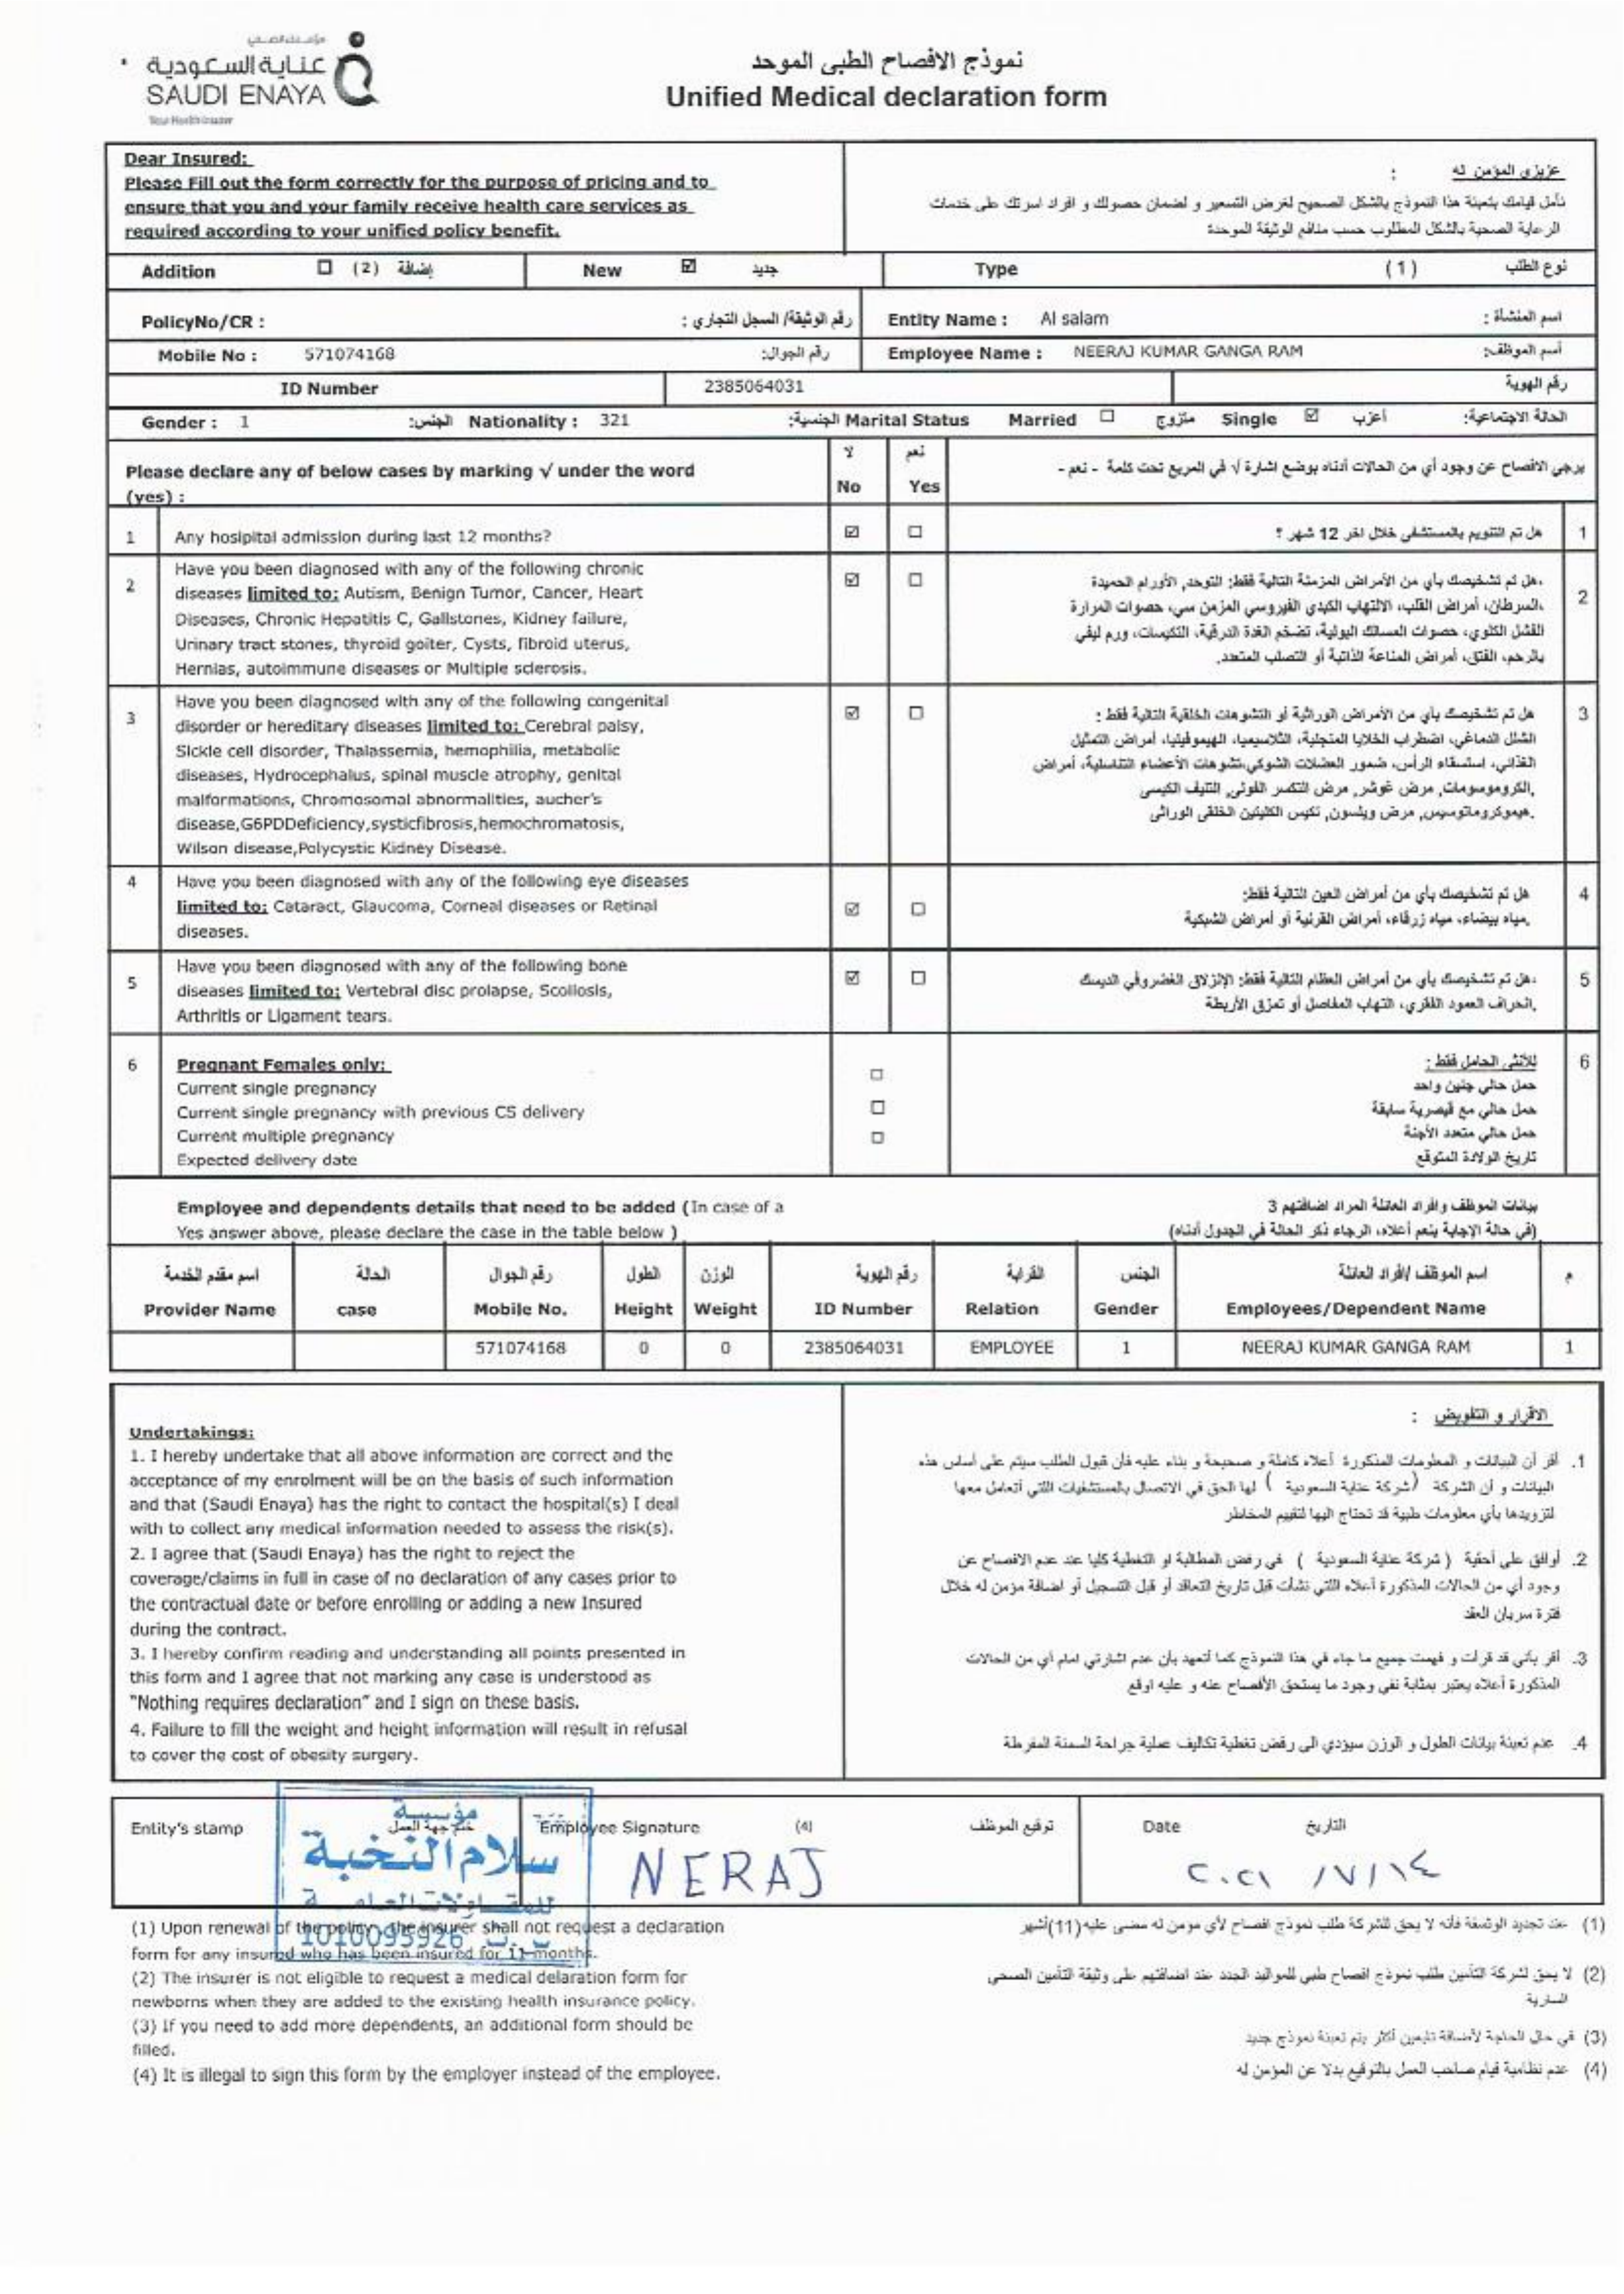 عناية السعودية
SAUDI ENAYA
نموذج الافصاح الطبى الموحد
Unified Medical declaration form
Dear Insured:
Please Fill out the form correctly for the purpose of pricing and to
ensure that you and your family receive health care services as
required according to your unified policy benefit.
عزيزى المؤمن له :
نأمل قيامك بتعبئة هذا النموذج بالشكل الصحيح لغرض التسعير و لضمان حصولك و افراد اسرتك على خدمات
الرعاية الصحية بالشكل المطلوب حسب منافع الوثيقة الموحدة
Addition ☐ (2) إضافة New ☑ جديد Type (1) نوع الطلب
PolicyNo/CR : رقم الوثيقة/ السجل التجاري : Entity Name : Al salam اسم المنشأة :
Mobile No : 571074168 رقم الجوال: Employee Name : NEERAJ KUMAR GANGA RAM أسم الموظف:
ID Number 2385064031 رقم الهوية
Gender : 1 الجنس: Nationality : 321 الجنسية: Marital Status Married ☐ متزوج Single ☑ أعزب الحالة الاجتماعية:
Please declare any of below cases by marking √ under the word
(yes) :
لا نعم
No Yes
يرجي الافصاح عن وجود أي من الحالات أدناه بوضع اشارة √ في المربع تحت كلمة - نعم -
1 Any hosipital admission during last 12 months? ☑ ☐ هل تم التنويم بالمستشفى خلال اخر 12 شهر ؟ 1
2 Have you been diagnosed with any of the following chronic
diseases limited to: Autism, Benign Tumor, Cancer, Heart
Diseases, Chronic Hepatitis C, Gallstones, Kidney failure,
Urinary tract stones, thyroid goiter, Cysts, fibroid uterus,
Hernias, autoimmune diseases or Multiple sclerosis.
☑ ☐
هل تم تشخيصك بأي من الأمراض المزمنة التالية فقط: التوحد, الأورام الحميدة،
السرطان، أمراض القلب، الالتهاب الكبدي الفيروسي المزمن سي، حصوات المرارة،
الفشل الكلوي، حصوات المسالك البولية، تضخم الغدة الدرقية، التكيسات، ورم ليفي
بالرحم، الفتق، أمراض المناعة الذاتية أو التصلب المتعدد. 2
3 Have you been diagnosed with any of the following congenital
disorder or hereditary diseases limited to: Cerebral palsy,
Sickle cell disorder, Thalassemia, hemophilia, metabolic
diseases, Hydrocephalus, spinal muscle atrophy, genital
malformations, Chromosomal abnormalities, aucher's
disease,G6PDDeficiency,systicfibrosis,hemochromatosis,
Wilson disease,Polycystic Kidney Disease.
☑ ☐
هل تم تشخيصك بأي من الأمراض الوراثية أو التشوهات الخلقية التالية فقط :
الشلل الدماغي، اضطراب الخلايا المنجلية، الثلاسيميا، الهيموفيليا، أمراض التمثيل
الغذائي، استسقاء الرأس، ضمور العضلات الشوكي،تشوهات الأعضاء التناسلية، أمراض
الكروموسومات, مرض غوشر, مرض التكسر الفولى, التليف الكيسى,
هيموكروماتوسيس, مرض ويلسون, تكيس الكليتين الخلقى الوراثى. 3
4 Have you been diagnosed with any of the following eye diseases
limited to: Cataract, Glaucoma, Corneal diseases or Retinal
diseases.
☑ ☐
هل تم تشخيصك بأي من أمراض العين التالية فقط:
مياه بيضاء، مياه زرقاء، أمراض القرنية أو أمراض الشبكية. 4
5 Have you been diagnosed with any of the following bone
diseases limited to: Vertebral disc prolapse, Scoliosis,
Arthritis or Ligament tears.
☑ ☐
هل تم تشخيصك بأي من أمراض العظام التالية فقط: الإنزلاق الغضروفي الديسك،
انحراف العمود الفقري، التهاب المفاصل أو تمزق الأربطة. 5
6 Pregnant Females only:
Current single pregnancy ☐
Current single pregnancy with previous CS delivery ☐
Current multiple pregnancy ☐
Expected delivery date
للأنثى الحامل فقط : 6
حمل حالي جنين واحد
حمل حالي مع قيصرية سابقة
حمل حالي متعدد الأجنة
تاريخ الولادة المتوقع
Employee and dependents details that need to be added (In case of a
Yes answer above, please declare the case in the table below )
بيانات الموظف وافراد العائلة المراد اضافتهم 3
(في حالة الإجابة بنعم أعلاه، الرجاء ذكر الحالة في الجدول أدناه)
اسم مقدم الخدمة الحالة رقم الجوال الطول الوزن رقم الهوية القرابة الجنس اسم الموظف /أفراد العائلة م
Provider Name case Mobile No. Height Weight ID Number Relation Gender Employees/Dependent Name
571074168 0 0 2385064031 EMPLOYEE 1 NEERAJ KUMAR GANGA RAM 1
Undertakings:
1. I hereby undertake that all above information are correct and the
acceptance of my enrolment will be on the basis of such information
and that (Saudi Enaya) has the right to contact the hospital(s) I deal
with to collect any medical information needed to assess the risk(s).
2. I agree that (Saudi Enaya) has the right to reject the
coverage/claims in full in case of no declaration of any cases prior to
the contractual date or before enrolling or adding a new Insured
during the contract.
3. I hereby confirm reading and understanding all points presented in
this form and I agree that not marking any case is understood as
"Nothing requires declaration" and I sign on these basis.
4. Failure to fill the weight and height information will result in refusal
to cover the cost of obesity surgery.
الاقرار و التفويض :
1. أقر أن البيانات و المعلومات المذكورة أعلاه كاملة و صحيحة و بناء عليه فأن قبول الطلب سيتم على أساس هذه
البيانات و أن الشركة (شركة عناية السعودية ) لها الحق في الاتصال بالمستشفيات اللتي أتعامل معها
لتزويدها بأي معلومات طبية قد تحتاج اليها لتقييم المخاطر
2. أوافق على أحقية ( شركة عناية السعودية ) في رفض المطالبة او التغطية كليا عند عدم الافصاح عن
وجود أي من الحالات المذكورة أعلاه اللتي نشأت قبل تاريخ التعاقد أو قبل التسجيل أو اضافة مؤمن له خلال
فترة سريان العقد
3. أقر بأني قد قرأت و فهمت جميع ما جاء في هذا النموذج كما أتعهد بأن عدم اشارتي امام أي من الحالات
المذكورة أعلاه يعتبر بمثابة نفي وجود ما يستحق الأفصاح عنه و عليه اوقع
4. عدم تعبئة بيانات الطول و الوزن سيؤدي الى رفض تغطية تكاليف عملية جراحة السمنة المفرطة
Entity's stamp ختم جهة العمل Employee Signature (4) توقيع الموظف Date التاريخ
مؤسسة
سلام النخبة
1010095926
NERAJ
٢٠٢١ /٧/١٤
(1) Upon renewal of the policy, the insurer shall not request a declaration
form for any insured who has been insured for 11 months.
(2) The insurer is not eligible to request a medical delaration form for
newborns when they are added to the existing health insurance policy.
(3) If you need to add more dependents, an additional form should be
filled.
(4) It is illegal to sign this form by the employer instead of the employee.
(1) عند تجديد الوثيقة فأنه لا يحق للشركة طلب نموذج افصاح لأي مومن له مضى عليه(11)أشهر
(2) لا يحق لشركة التأمين طلب نموذج افصاح طبي للمواليد الجدد عند اضافتهم على وثيقة التأمين الصحي
السارية
(3) في حال الحاجة لأضافة تابعين أكثر يتم تعبئة نموذج جديد
(4) عدم نظامية قيام صاحب العمل بالتوقيع بدلا عن المؤمن له